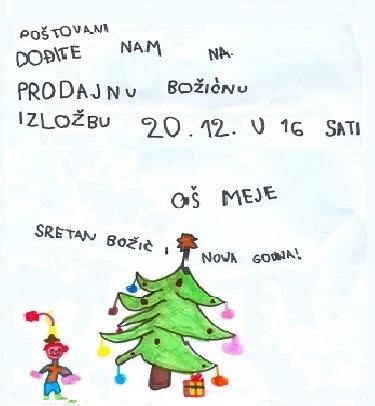 POŠTOVANI
DOĐITE NAM NA
PRODAJNU BOŽIĆNU
IZLOŽBU 20.12. U 16 SATI
OŠ MEJE
SRETAN BOŽIĆ I NOVA GODINA!